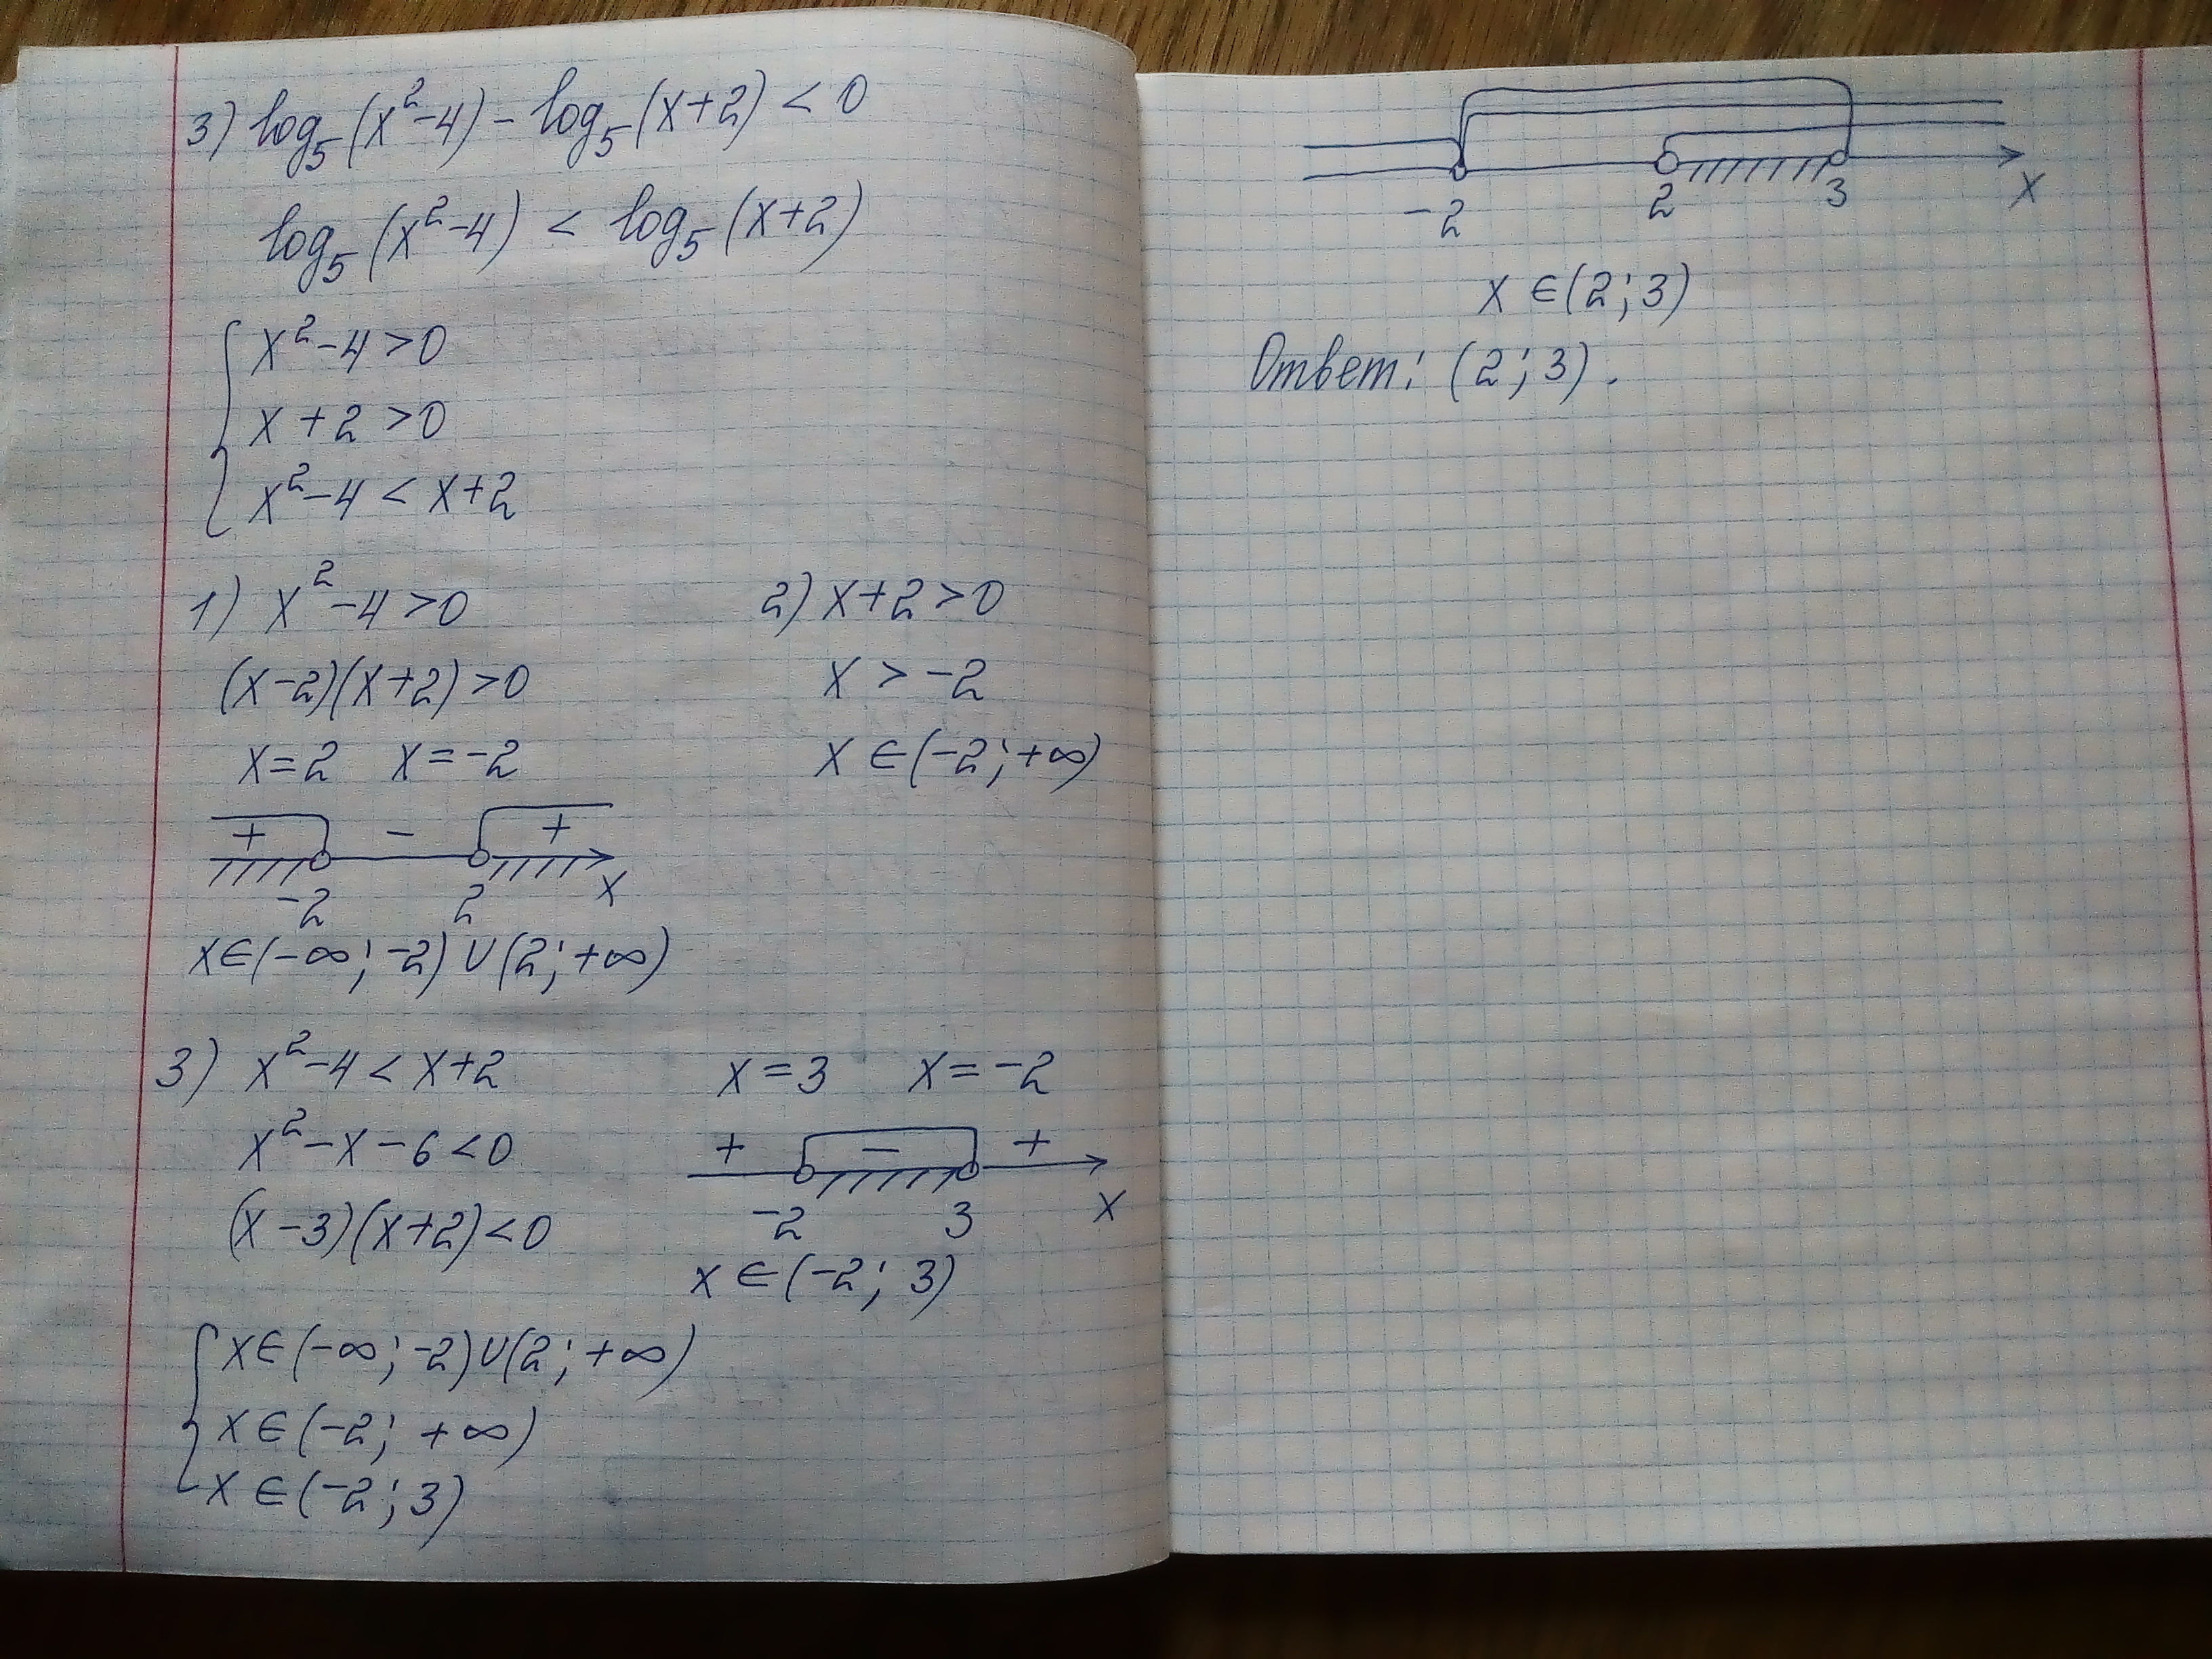 3) log₅(x²-4) - log₅(x+2) < 0
log₅(x²-4) < log₅(x+2)
x²-4>0
x+2>0
x²-4 < x+2
1) x²-4>0
(x-2)(x+2)>0
x=2 x=-2
+ - +
-2 2 x
x∈(-∞; -2)∪(2; +∞)
2) x+2>0
x > -2
x∈(-2; +∞)
3) x²-4 < x+2
x²-x-6<0
(x-3)(x+2)<0
x=3 x=-2
+ - +
-2 3 x
x∈(-2; 3)
x∈(-∞; -2)∪(2; +∞)
x∈(-2; +∞)
x∈(-2; 3)
-2 2 3 x
x∈(2; 3)
Ответ: (2; 3).